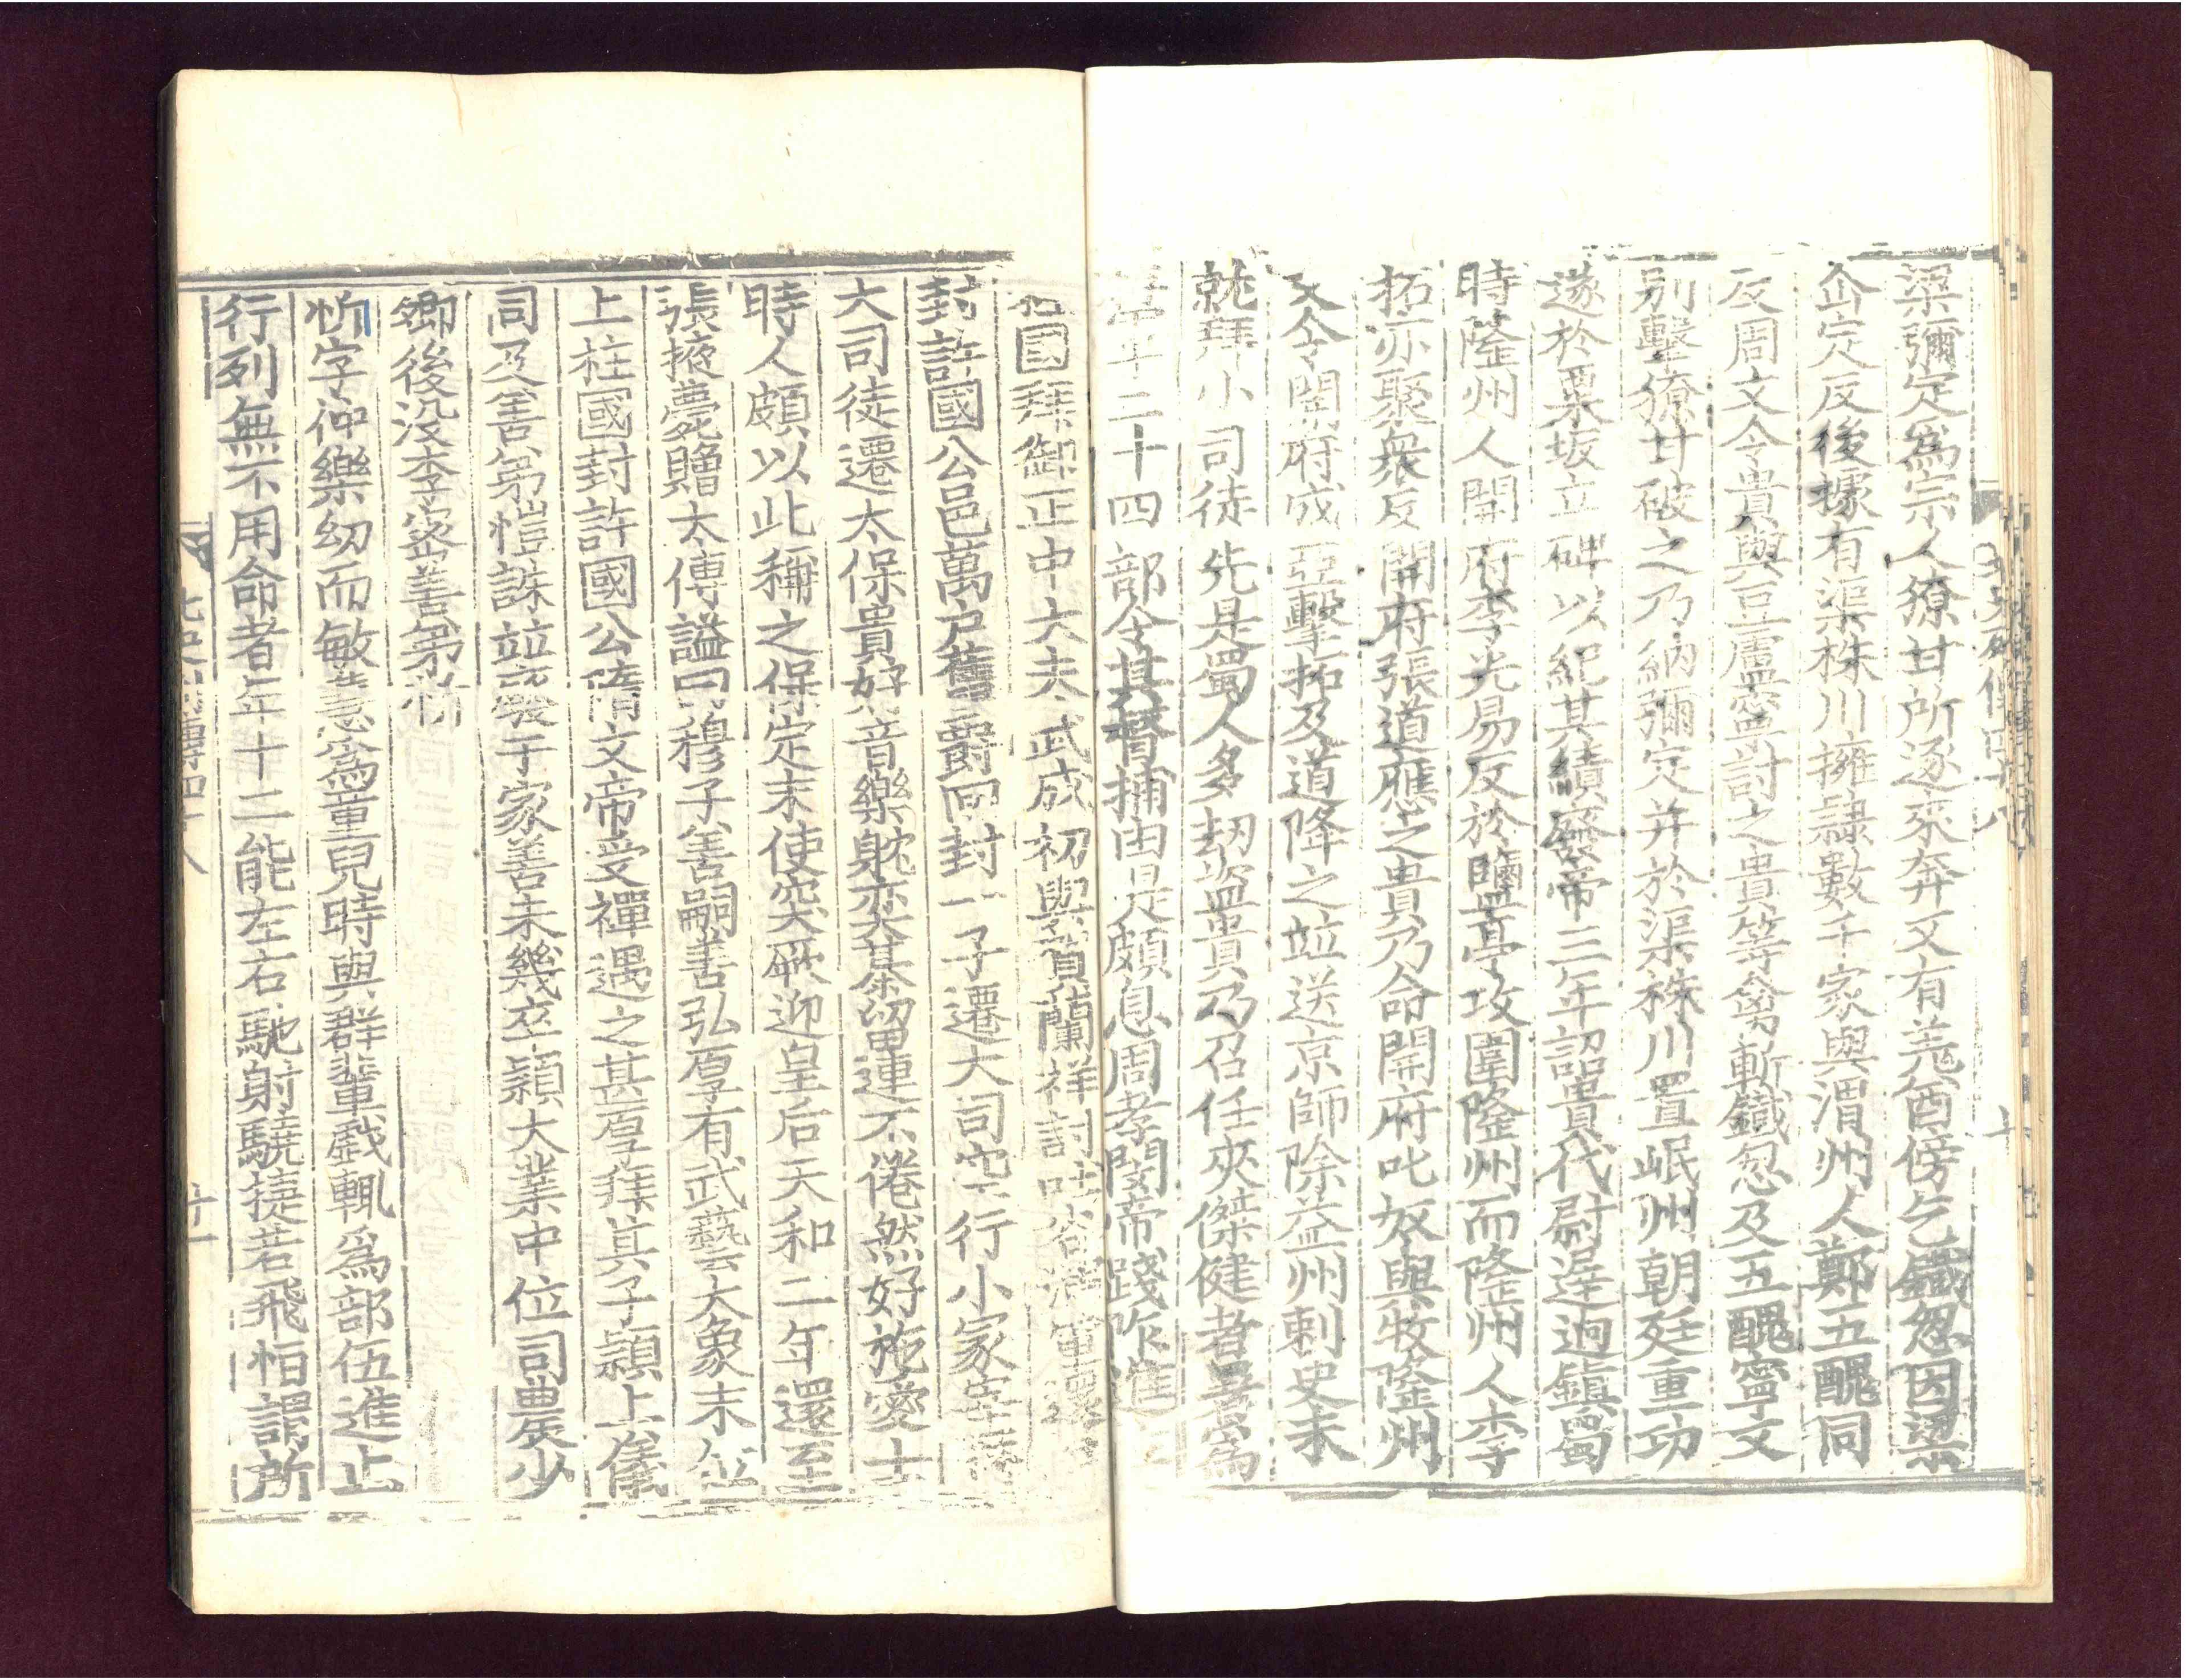 梁彌定爲宗人獠甘所逐來奔又有羌酋傍乞鐵忽因梁
仚定反後據有渠株川擁隷數千家與渭州人鄭五醜同
反周文令貴與豆盧寧討之貴等禽斬鐵忽及五醜寧文
別擊獠甘破之乃納彌定并於渠株川置岷州朝廷重功
遂於粟坂立碑以紀其績廢帝三年詔貴代尉遲逈鎭蜀
時隆州人開府李光易反於鹽亭攻圍隆州而隆州人李
拓亦聚衆反開府張道應之貴乃命開府叱奴與牧隆州
又令開府成亞擊拓及道降之並送京師除益州刺史未
就拜小司徒先是蜀人多劫盜貴乃召任夾傑健者署爲
二十四部令其督捕由是頗息周孝閔帝踐阼進
國拜御正中大夫武成初與賀蘭祥討吐谷渾軍還
封許國公邑萬戸舊爵回封一子遷大司空行小冢宰
大司徒遷太保貴好音樂躭弈棊留連不倦然好施愛士
時人頗以此稱之保定末使突厥迎皇后天和二年還至
張掖薨贈太傅謚曰穆子善嗣善弘厚有武藝大象末位
上柱國封許國公隋文帝受禪遇之甚厚拜其子頴上儀
同及善弟愷誅並廢于家善未幾卒頴大業中位司農少
卿後沒李密善弟忻
忻字仲樂幼而敏慧爲童兒時與群輩戱輒爲部伍進止
行列無不用命者年十二能左右馳射驍捷若飛怕謂所
北史列傳四十八
十一